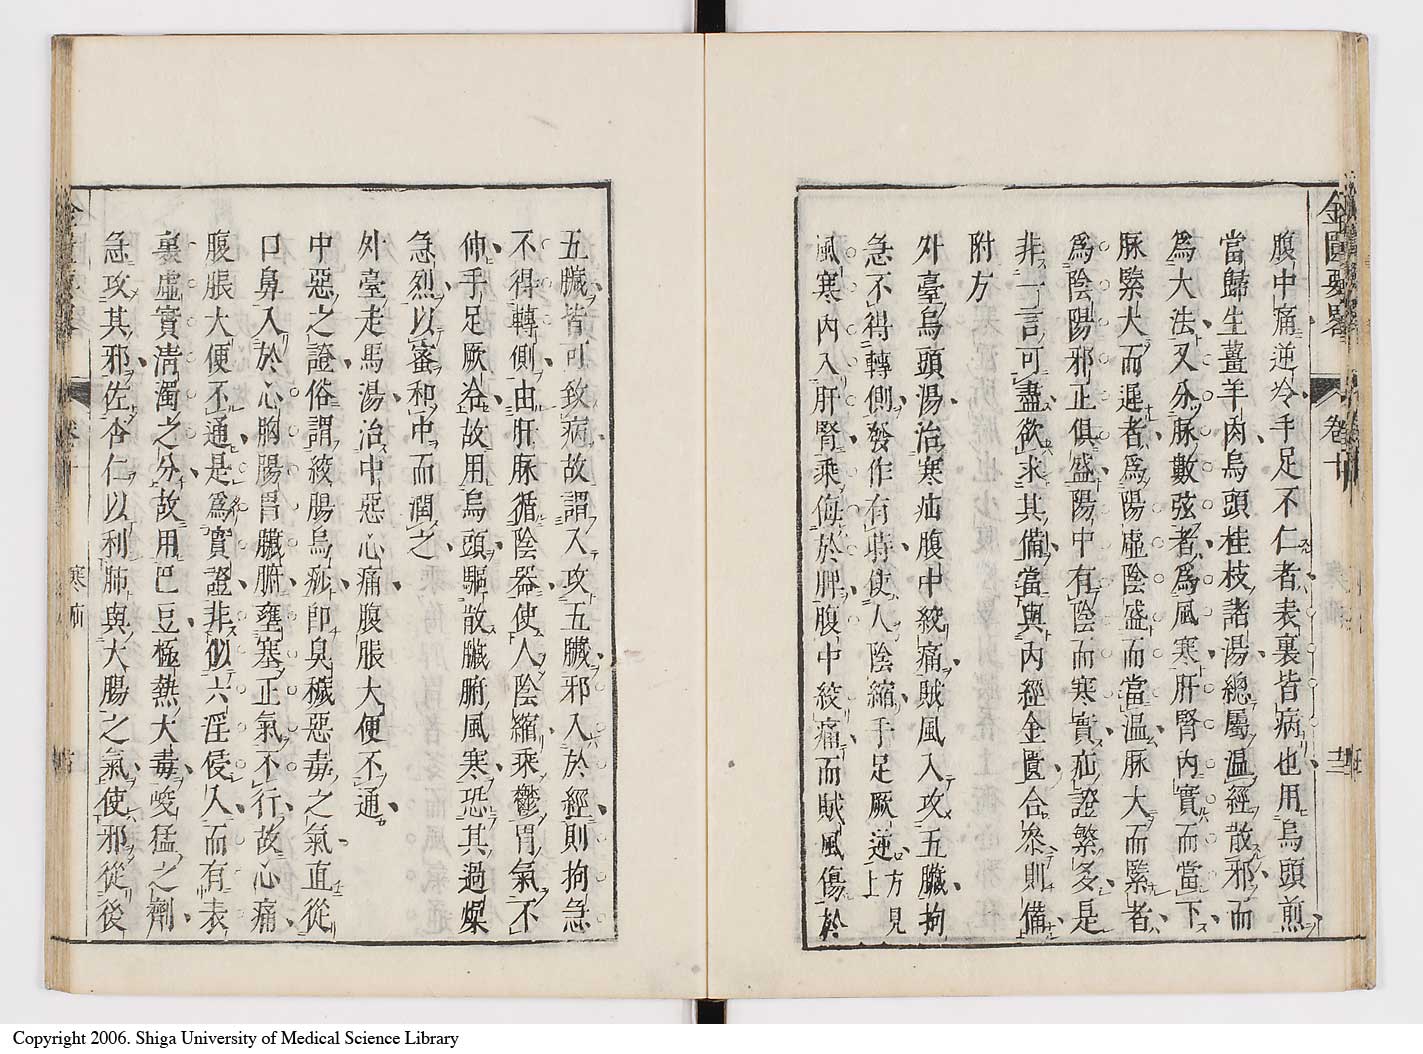 金匱要畧
卷十
寒疝
腹中痛逆冷手足不仁者表裏皆病也用烏頭煎
當歸生薑羊肉烏頭桂枝諸湯總屬温經散邪而
爲大法又分脉數弦者爲風寒肝腎内實而當下
脉緊大而遲者爲陽虛陰盛而當温脉大而緊者
爲陰陽邪正俱盛陽中有陰而寒實疝證繁多是
非一言可盡欲求其備當與内經金匱合參則備
附方
外臺烏頭湯治寒疝腹中絞痛賊風入攻五臟拘
急不得轉側發作有時使人陰縮手足厥逆方見上
風寒内入肝腎乘侮於脾腹中絞痛而賊風傷於
五臟皆可致病故謂入攻五臟邪入於經則拘急
不得轉側由肝脉循陰器使人陰縮乘鬱胃氣不
伸手足厥冷故用烏頭驅散臟腑風寒恐其過燥
急烈以蜜和中而潤之
外臺走馬湯治中惡心痛腹脹大便不通
中惡之證俗謂絞腸烏痧卽臭穢惡毒之氣直從
口鼻入於心胸腸胃臟腑壅塞正氣不行故心痛
腹脹大便不通是爲實證非似六淫侵入而有表
裏虛實淸濁之分故用巴豆極熱大毒峻猛之劑
急攻其邪佐杏仁以利肺與大腸之氣使邪從後
Copyright 2006. Shiga University of Medical Science Library